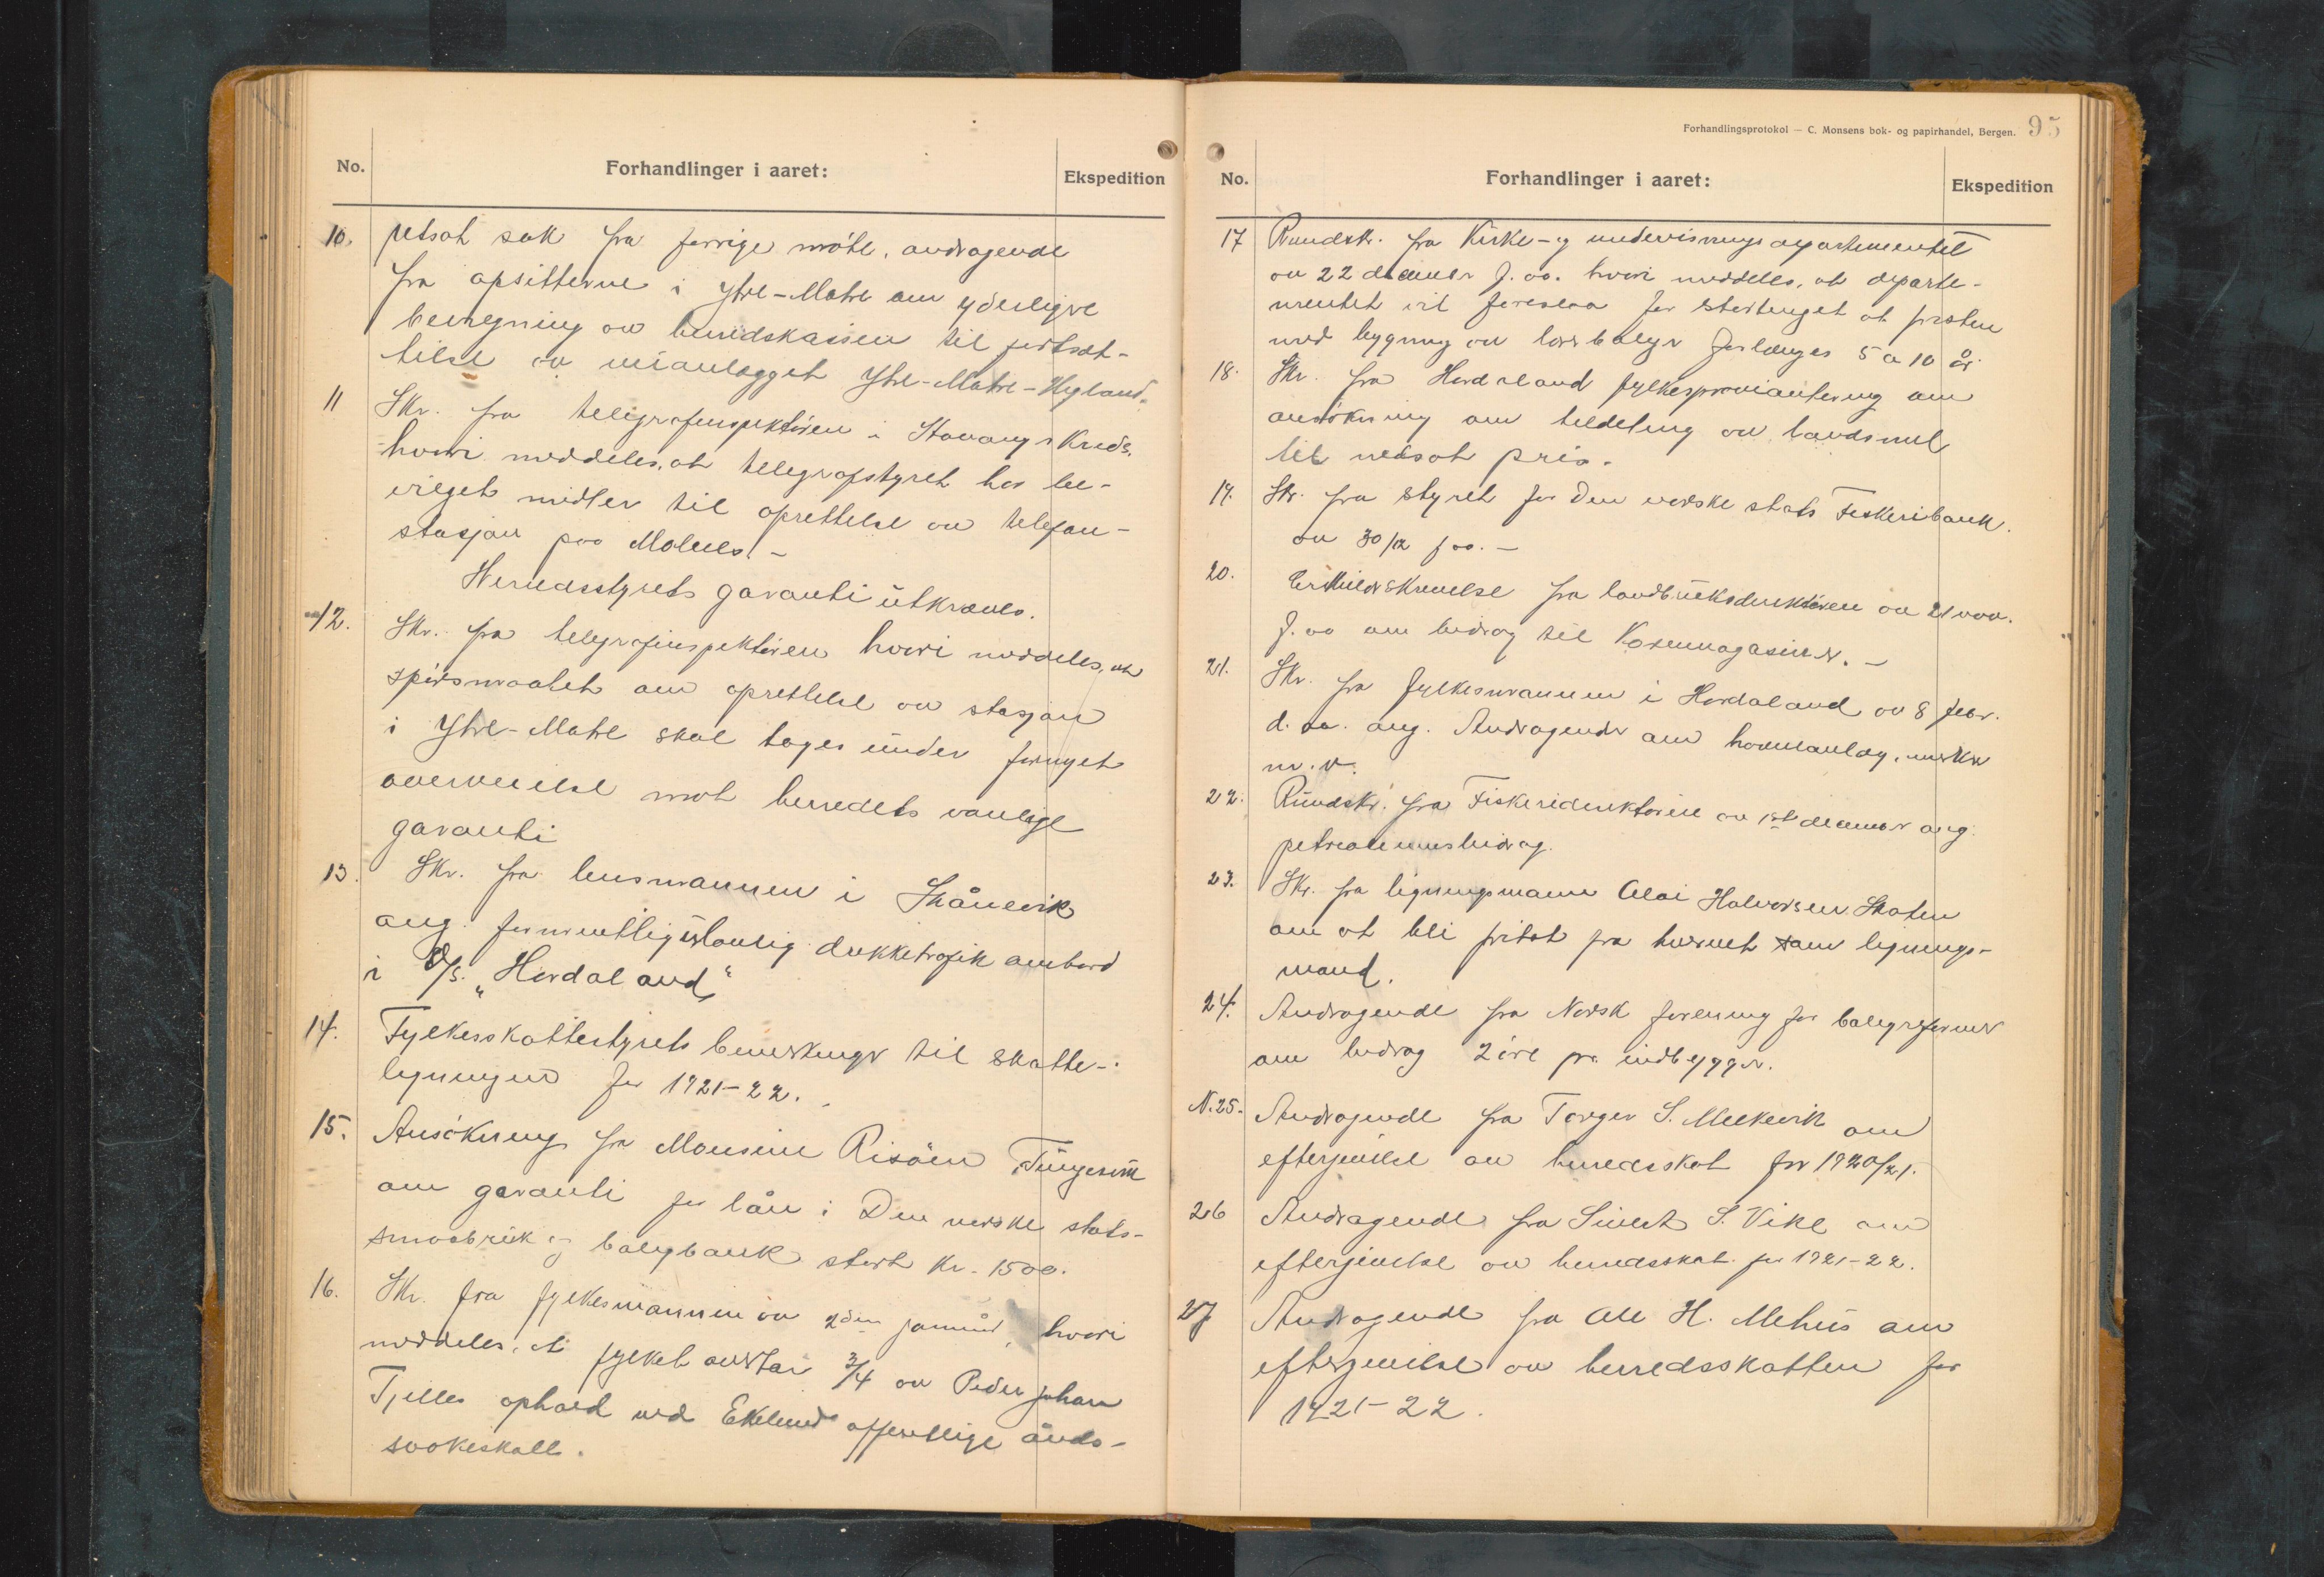 No. Forhandlinger i aaret: Ekspedition
10. utsat sak fra forrige möte, andragende
fra opsitterne i Ytre-Matre om yderligere
bevilgning av herredskassen til fortsæt-
telse av veianlægget Ytre-Matre-Nyland.
11 Skr. fra telegrafinspektören i Stavanger Kreds.
hvori meddeles, at telegrafstyret har be-
vilget midler til oprettelse av telefon-
stasjon paa Molnes. -
Herredsstyrets garanti ütkræves.
12. Skr. fra telegrafinspektören hvori meddeles, at
spörsmaalet om oprettelse av stasjon
i Ytre-Matre skal tages ünder fornyet
overveielse mot herredets vanlige
garanti
13. Skr. fra lensmannen i Skånevik
ang. formentlig ülovlig drikketrafik ombord
i D/S. „Hordaland“
14. Fylkesskattestyrets bemerkninger til skatte-
ligningen for 1921-22.
15. Ansökning fra Monsine Risöen, Tüngesvik
om garanti for lån i Den norske stats-
smaabrük og boligbank stort kr. 1500.
16. Skr. fra fylkesmannen av 2den januar, hvori
meddeles, at fylket overtar 3/4 av Peder Johan
Tjelles ophold ved Eklund offentlige ånds-
svakeskole.
Forhandlingsprotokol — C. Monsens bok- og papirhandel, Bergen. 95
No. Forhandlinger i aaret: Ekspedition
17 Rundskr. fra Kirke- og undervisningsdepartementet
av 22 december f. aa. hvori meddeles, at departe-
mentet vil foreslaa for stortinget at fristen
med bygning av lærerboliger forlænges 5 a 10 år.
18. Skr. fra Hordaland fylkesproviantering om
ansökning om tildeling av landsmel
til nedsat pris.
19. Skr. fra styret for Den norske stats Fiskeribank.
av 30/12 f aa. -
20. Cirkulærskrivelse fra landbruksdirektören av 21 nov.
f. aa om bidrag til Kornmagasiner. -
21. Skr. fra fylkesmannen i Hordaland av 8 febr.
d. aa. ang. Andragender om havneanlæg, merker
m. v.
22. Rundskr. fra Fiskeridirektören av 1ste december ang.
petroleumsbidrag.
23. Skr. fra ligningsmann Olai Halvorsen Skaten
om at bli fritat fra hvervet som lignings-
mand.
24. Andragende fra Norsk forening for boligreformer
om bidrag 2 öre pr. indbygger.
N. 25. Andragende fra Torger S. Melkevik om
eftergivelse av herredsskat for 1920/21.
26 Andragende fra Sivert S. Vike om
eftergivelse av herredsskat for 1921-22.
27 Andragende fra Ole H. Mehus om
eftergivelse av herredsskatten for
1921-22.